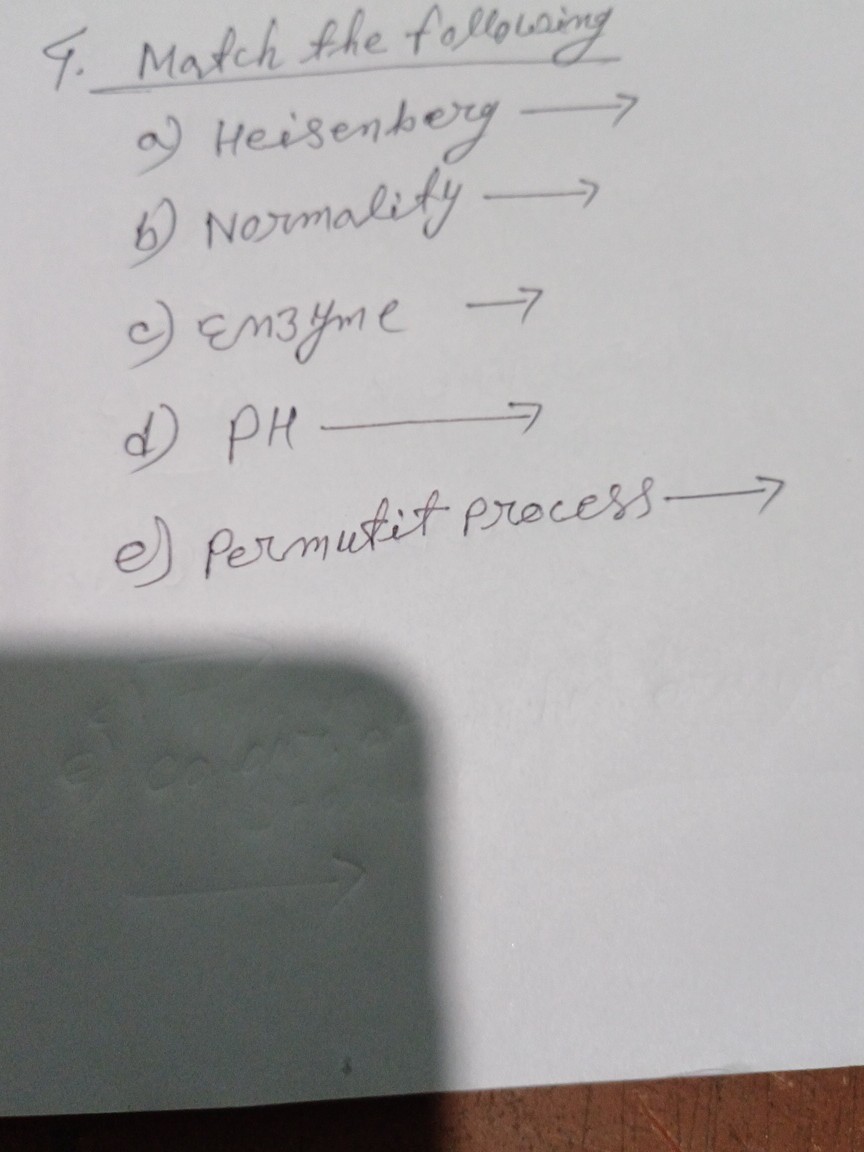 4. Match the following
a) Heisenberg →
b) Normality →
c) Enzyme →
d) PH →
e) Permutit process →